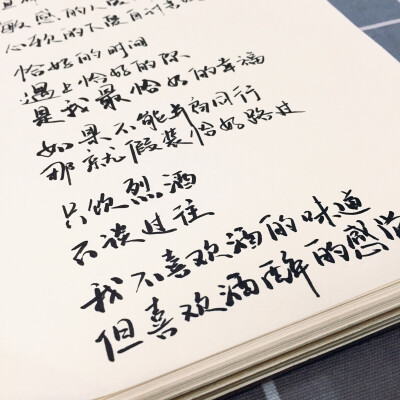 敏感的人
心软的下
恰好的时间
遇上恰好的你
是我最恰好的幸福
如果不能与你同行
那就假装恰好路过
只饮烈酒
不谈过往
我不喜欢酒的味道
但喜欢酒醉的感觉